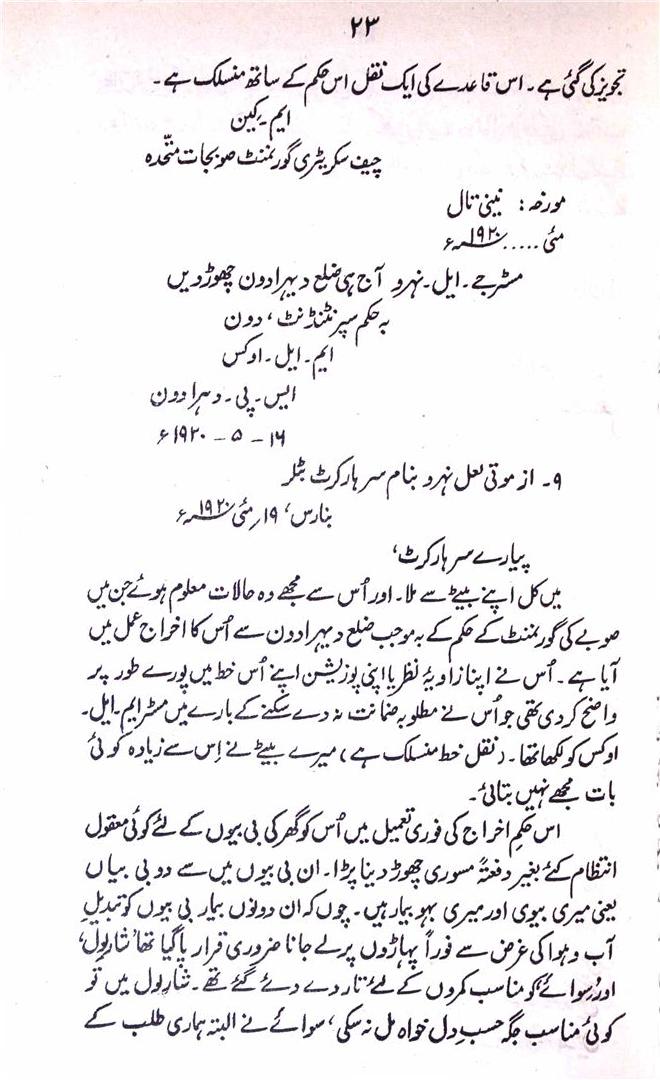 ۲۳
تجویز کی گئی ہے۔ اس قاعدے کی ایک نقل اس حکم کے ساتھ منسلک ہے۔
ایم۔ کین
چیف سکریٹری گورنمنٹ صوبجات متحّدہ
مورخہ: نینی تال
مئی ..... ۱۹۲۰ء
مسٹر جے۔ ایل۔ نہرو آج ہی ضلع دیہرادون چھوڑ دیں
بہ حکم سپرنٹنڈنٹ، دون
ایم۔ ایل۔ اوکس
ایس۔ پی۔ دہرادون
۱۶ – ۵ – ۱۹۲۰ء
۹۔ از موتی لعل نہرو بنام سر ہارکرٹ بٹلر
بنارس، ۱۹؍ مئی ۱۹۲۰ء
پیارے سر ہارکرٹ،
میں کل اپنے بیٹے سے ملا۔ اور اُس سے مجھے وہ حالات معلوم ہوئے جن میں
صوبے کی گورنمنٹ کے حکم کے بہ موجب ضلع دیہرادون سے اُس کا اخراج عمل میں
آیا ہے۔ اُس نے اپنا زاویۂ نظر یا اپنی پوزیشن اپنے اُس خط میں پورے طور پر
واضح کر دی تھی جو اُس نے مطلوبہ ضمانت نہ دے سکنے کے بارے میں مسٹر ایم۔ ایل۔
اوکس کو لکھا تھا۔ (نقل خط منسلک ہے) میرے بیٹے نے اِس سے زیادہ کوئی
بات مجھے نہیں بتائی۔
اس حکمِ اخراج کی فوری تعمیل میں اُس کو گھر کی بی بیوں کے لئے کوئی معقول
انتظام کئے بغیر دفعتہً مسوری چھوڑ دینا پڑا۔ ان بی بیوں میں سے دو بی بیاں
یعنی میری بیوی اور میری بہو بیمار ہیں۔ چوں کہ ان دونوں بیمار بی بیوں کو تبدیلِ
آب و ہوا کی غرض سے فوراً پہاڑوں پر لے جانا ضروری قرار پا گیا تھا، شارلول،
اور سوائے، کو مناسب کمروں کے لئے تار دے دئے گئے تھے۔ شارلول میں تو
کوئی مناسب جگہ حسبِ دل خواہ مل نہ سکی، سوائے نے البتہ ہماری طلب کے